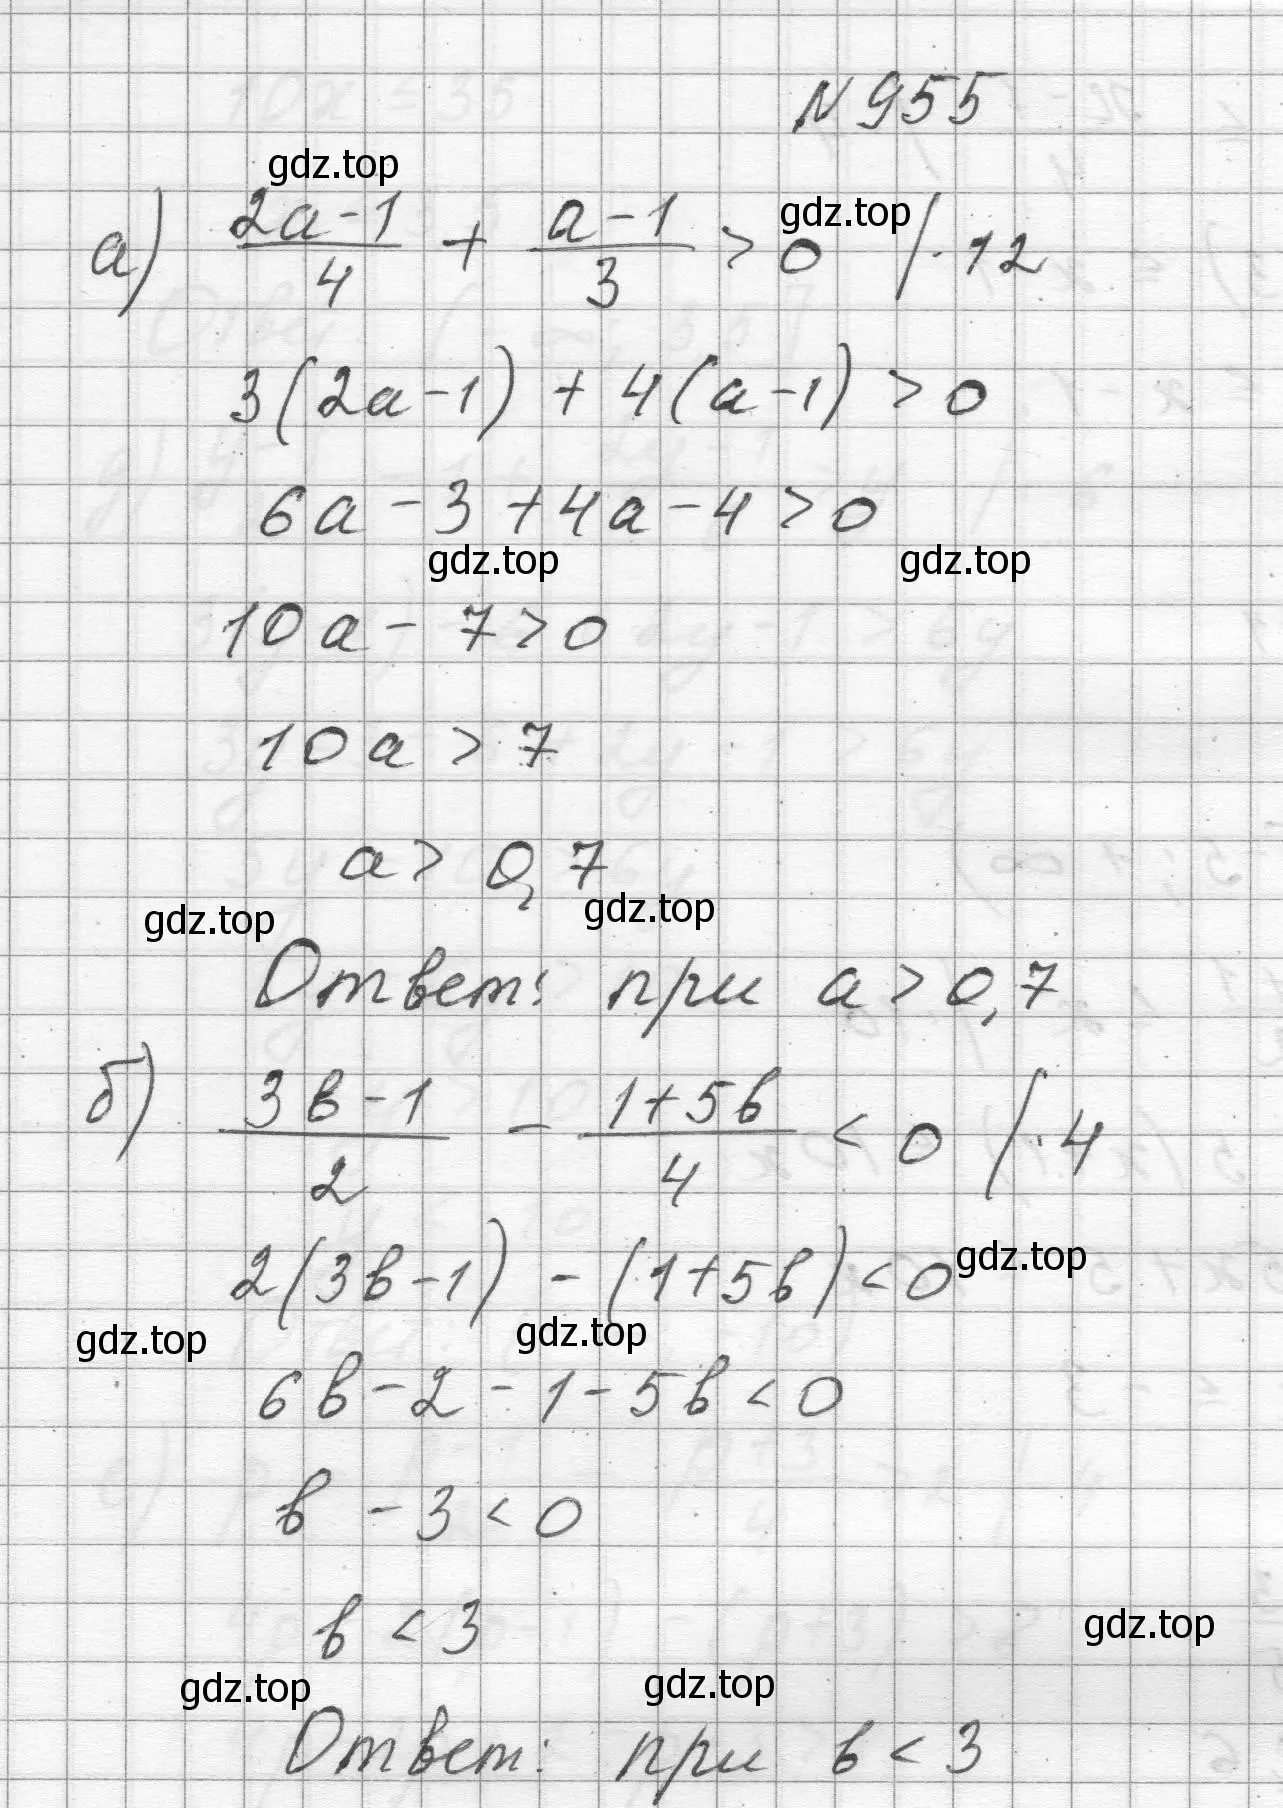 N 955
gdz.top
а) (2a-1)/4 + (a-1)/3 > 0 /·12
gdz.top
3(2a-1) + 4(a-1) > 0
6a - 3 + 4a - 4 > 0
gdz.top gdz.top
10a - 7 > 0
10a > 7
a > 0,7
gdz.top gdz.top
Ответ: при a > 0,7
б) (3b-1)/2 - (1+5b)/4 < 0 /·4
2(3b-1) - (1+5b) < 0
gdz.top
gdz.top gdz.top
6b - 2 - 1 - 5b < 0
b - 3 < 0
b < 3
gdz.top
gdz.top gdz.top
Ответ: при b < 3